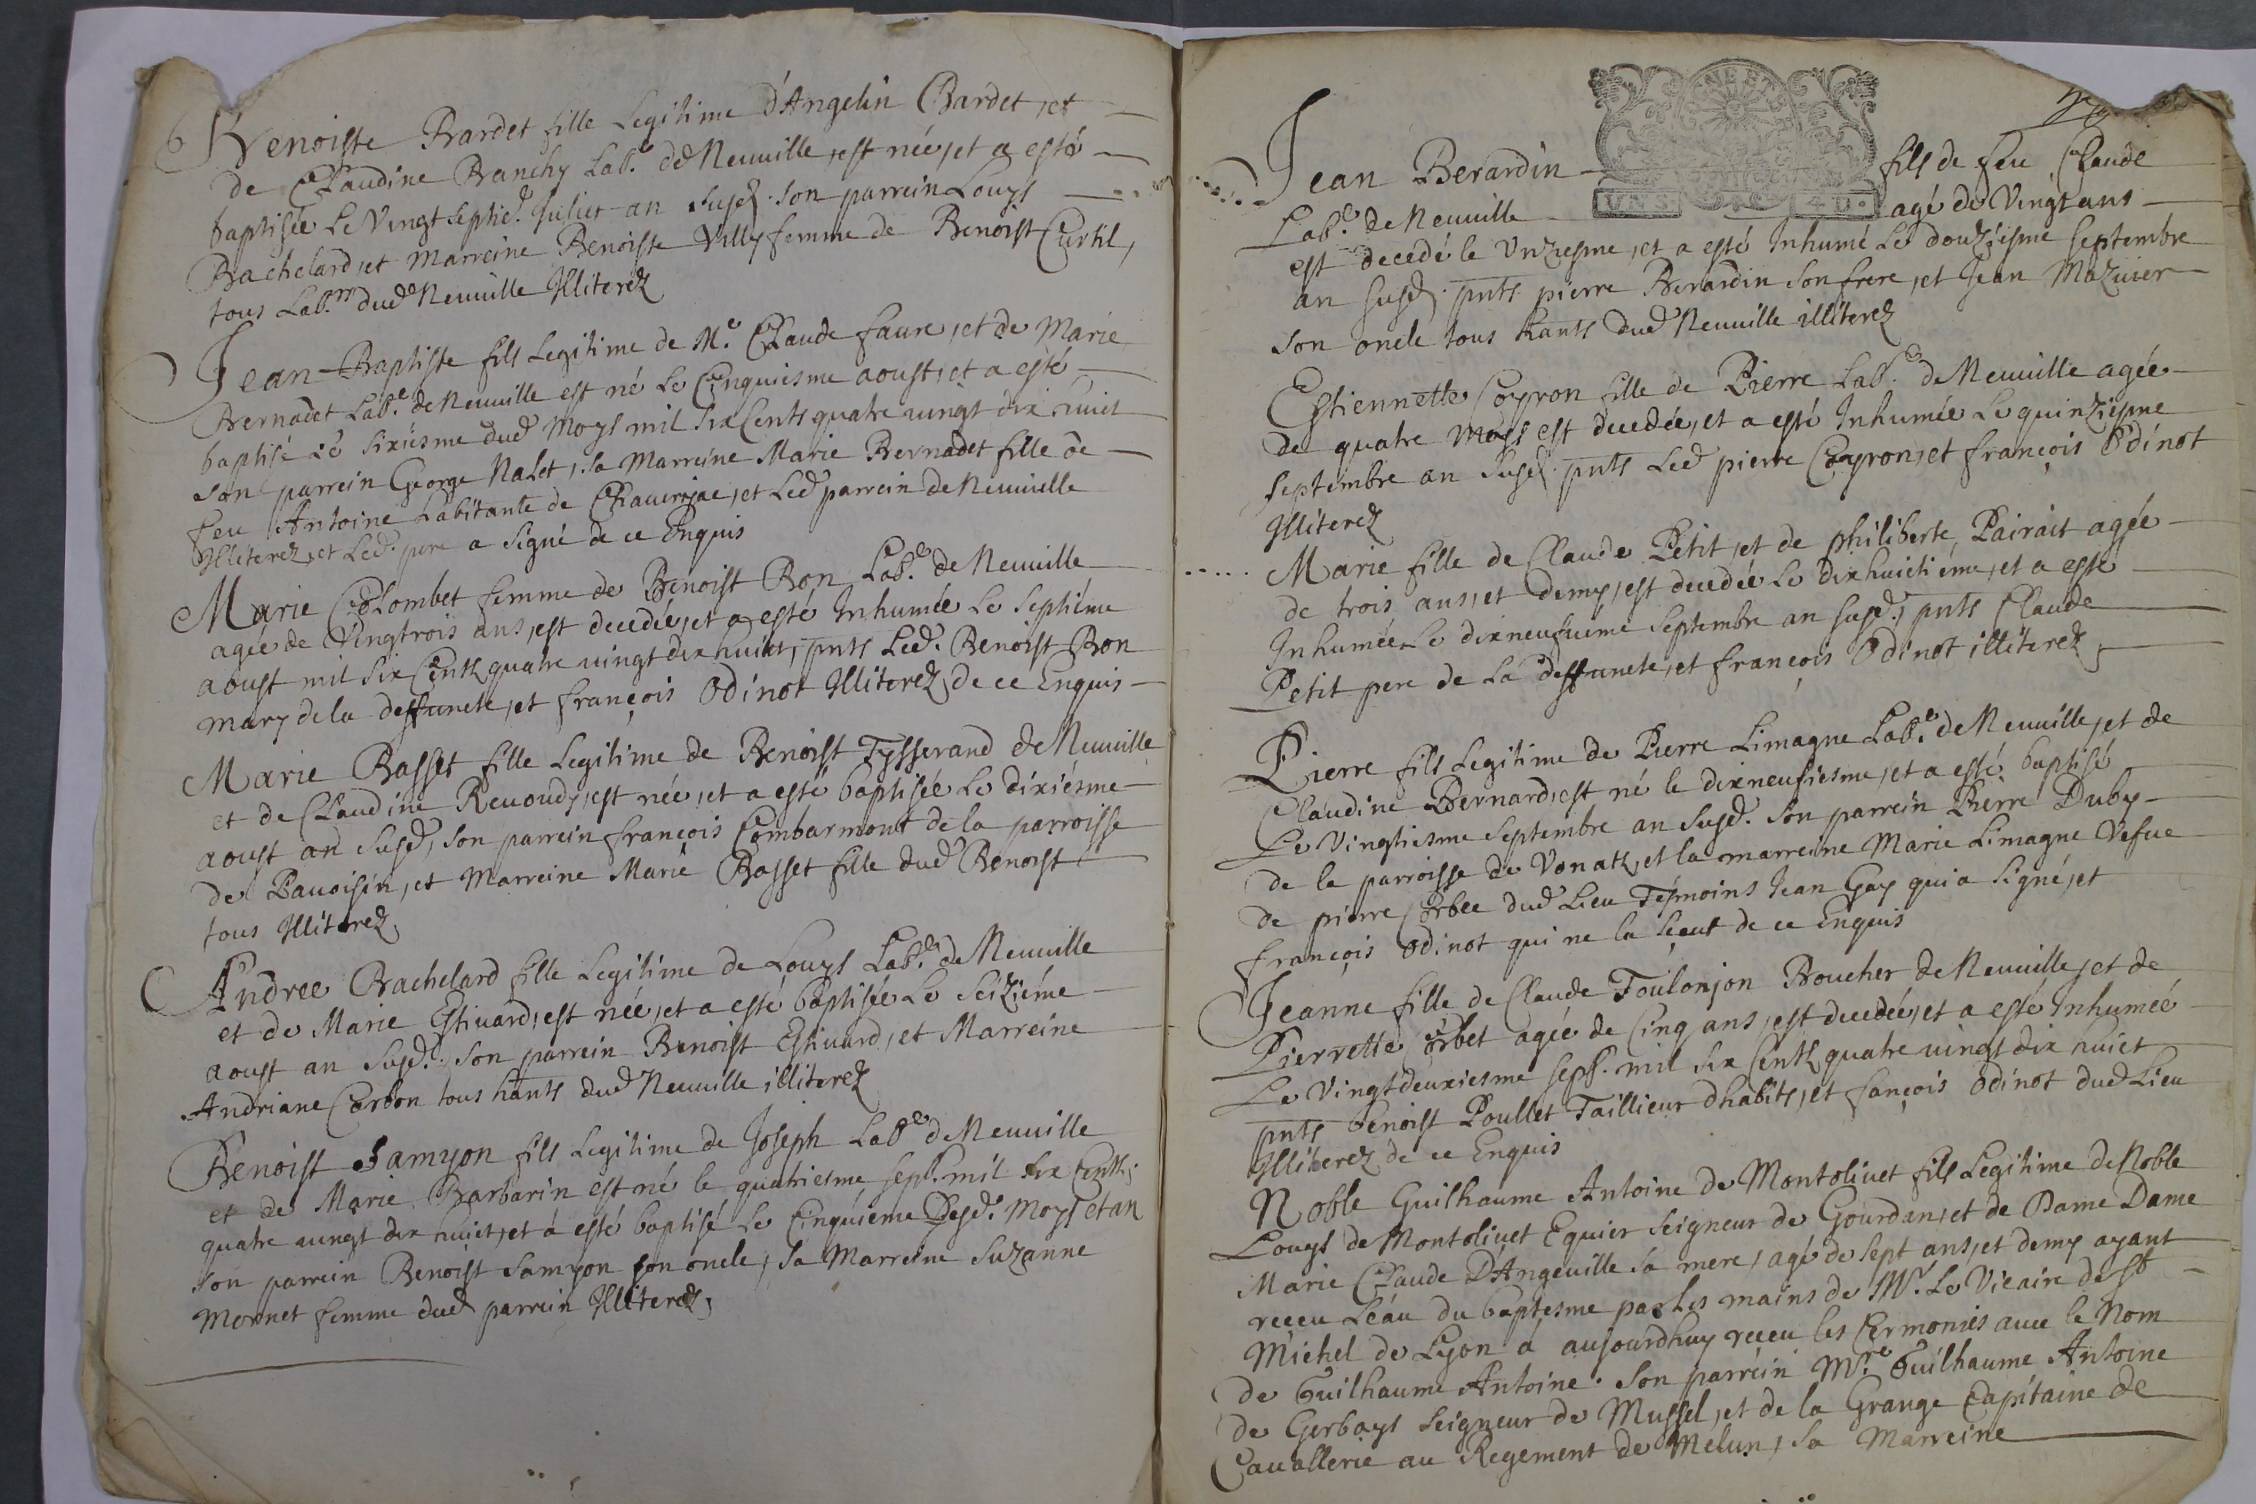 Benoiste Bardet fille Legitime d'Angelin Bardet, et
de Claudine Branchy Lab.r de Neuuille, est née, et a esté
baptisée Le Vingt septie.e Juliet an susd. son parrein Louys
Bachelard, et marreine Benoiste Villy femme de Benoist Curtil,
tous Lab.rs dud Neuuille Illiterez
Jean-Baptiste fils Legitime de M.e Claude faure, et de Marie
Bernadet Lab.r de Neuuille est né Le Cinquiesme aoust, et a esté
baptisé Le sixiesme dud moys mil six Cents quatre uingt dix huict
son parrein George Nalet, sa Marreine Marie Bernadet fille de
feu Antoine habitante de et Led parrein de Neuuille
Illiterez, et Led. pere a signé de ce Enquis
Marie Colombet femme de Benoist Bon Lab.r de Neuuille
agée de Vingtrois ans, est decedée, et a esté Inhumée Le septiéme
aoust mil six Centz quatre uingt dix huict, pnts Led. Benoist Bon
mary de la deffuncte, et françois Odinot Illiterez de ce Enquis
Marie Basset fille Legitime de Benoist Tysserand de Neuuille
et de Claudine Reuoudy, est née, et a esté baptisée Le dixiésme
aoust an susd, son parrein françois Combarmont de la parroisse
de Pauoisin, et Marreine Marie Basset fille dud Benoist
tous Illiterez
Andree Bachelard fille Legitime de Louys Lab.r de Neuuille
et de Marie Estiuard, est née, et a esté baptisée Le seiziéme
aoust an susd. son parrein Benoist Estiuard, et Marreine
Andriane Corbon tous hants dud Neuuille illiterez
Benoist Samyon fils Legitime de Joseph Lab.r de Neuuille
et de Marie Barbarin est né le quatriesme sept. mil six Centz
quatre uingt dix huict, et à esté baptisé Le Cinquieme Desd. moys et an
son parrein Benoist Samyon son oncle, sa Marreine Suzanne
Mornet femme dud parrein Illiterez,
Jean Berardin fils de feu Claude
UN S. 4 D.
Lab.r de Neuuille agé de Vingt ans
est decedé le Vnziesme, et a esté Inhumé Le douziesme septembre
an susd. pnts pierre Berardin son frere, et Jean Mazuier
son oncle tous hants dud Neuuille illiterez
Estiennette Coyron fille de Pierre Lab.r de Neuuille agée
de quatre moys est decedée, et a esté Inhumée Le quinziesme
septembre an susd. pnts Led pierre Coyron, et françois Odinot
Illiterez
Marie fille de Claude Petit, et de philiberte Pairait agée
de trois ans, et demy, est decedée Le dixhuictiéme, et a esté
Inhumée Le dixneufuieme septembre an susd., pnts Claude
Petit pere de La deffuncte, et françois Odinot illiterez,
Pierre fils Legitime de Pierre Limagne Lab.r de Neuuille, et de
Claudine Bernard, est né le dixneufiesme, et a esté baptisé
Le Vingtiesme septembre an susd. son parrein Pierre Duby
de la parroisse de Vonatz, et la marreine Marie Limagne Vefue
de pierre Corbee dud Lieu Tésmoins Jean Gay qui a signé, et
françois Odinot qui ne la sçeut de ce Enquis
Jeanne fille de Claude Toulonjon Boucher de Neuuille, et de
Pierrette Corbet agée de Cinq ans, est decedée, et a esté Inhumée
Le Vingtdeuxiesme sept. mil six Centz quatre uingt dix huict
pnts benoist Poullet Taillieur dhabits, et fançois Odinot dud Lieu
Illiterez de ce Enquis
Noble Guilhaume Antoine de Montoliuet fils Legitime de Noble
Louys de Montoliuet Equier seigneur de Gourdan, et de Dame Dame
Marie Claude D'Angeuille sa mere, agé de sept ans, et demy ayant
receu Léau du baptesme par les mains de M.r Le Vicaire de St
Michel de Lyon à aujourdhuy receu les Cermonies auec le Nom
de Guilhaume Antoine. Son parrein M.re Guilhaume Antoine
de Gerbays seigneur de Mussel, et de la Grange Capitaine de
Cauallerie au Regement de Melun, sa Marreine